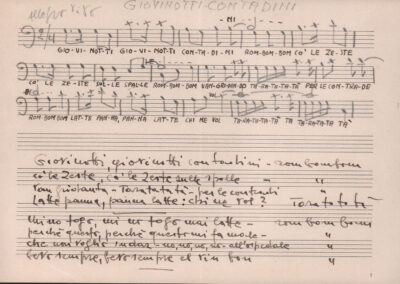 allegro
GIOVINOTTI CONTADINI
GIO-VI-NOT-TI GIO-VI-NOT-TI CON-TA-DI-NI ROM-BOM-BOM CO' LE ZE-STE
CO' LE ZE-STE SUL-LE SPALLE ROM-BOM-BOM VAN TA-RA-TA-TA-TA PER LE CON-TRA-DE
ROM-BOM-BOM LAT-TE PAN-NA, PAN-NA LAT-TE CHI ME VOL TA-RA-TA-TA TA TA-RA-TA-TA TA
Giovinotti, giovinotti contadini - rombombom
co' le zeste, co' le zeste sulle spalle "
Van - Taratatatà - per le contrade "
Latte panna, panna latte: chi me vol? Taratatatà
mi no togo, mi no togo mai latte - rom bom bom
perchè questo, perchè questo mi fa male - "
che non voglio andar - no, no, no, no - all'ospedale "
bevo sempre, bevo sempre el vin bon "